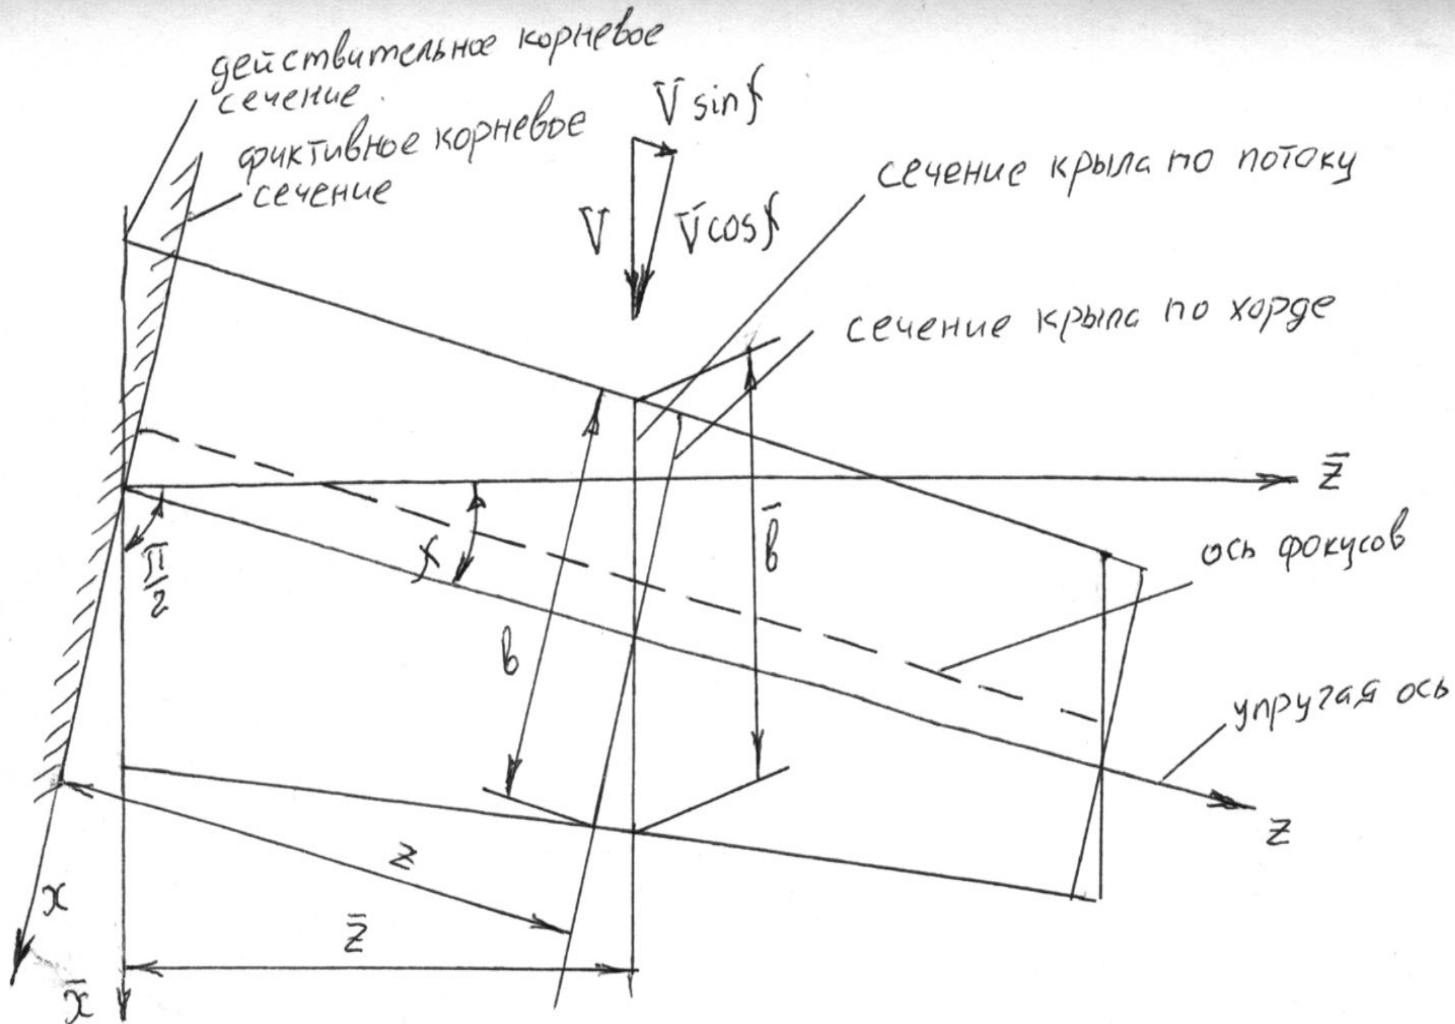 действительное корневое
сечение
фиктивное корневое
сечение
V̄ sin χ
V̄
V̄ cos χ
сечение крыла по потоку
сечение крыла по хорде
z̄
b̄
π/2
χ
ось фокусов
b
упругая ось
z
z
z̄
x
x̄